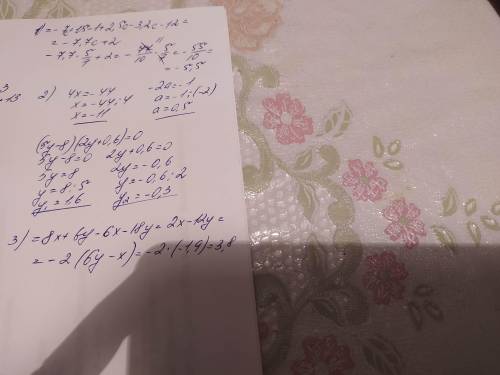 = -7,7c+2
-7,7 · 5/7 + 2 = - 77/10 · 5/7 = - 55/10 =
= -5,5
3
13
2) 4x = -44 -2a = -1
x = -44 : 4 a = -1 : (-2)
x = -11 a = 0,5
(5y-8)(2y+0,6)=0
5y-8=0 2y+0,6=0
5y=8 2y=-0,6
y=8:5 y=-0,6:2
y₁=1,6 y₂=-0,3
3) = 8x+6y-6x-18y = 2x-12y =
= -2(6y-x) = -2·(-1,9) = 3,8